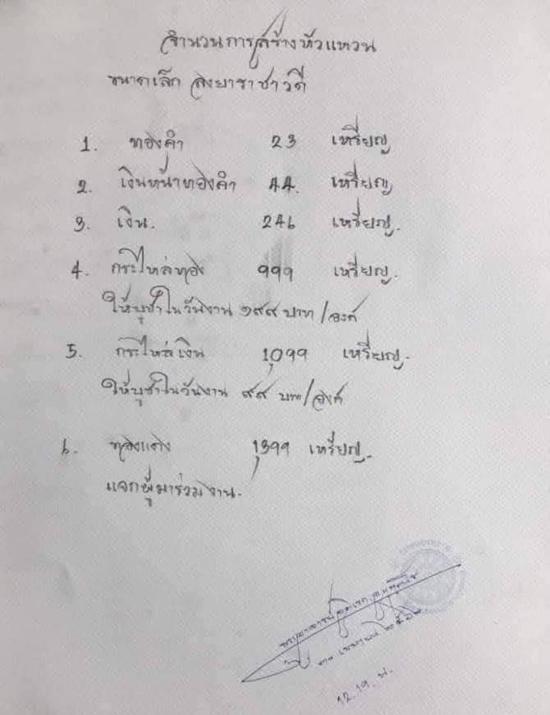 จำนวนการสร้างหัวแหวน
ขนาดเล็ก ลงยาราชาวดี
1. ทองคำ 23 เหรียญ
2. เงินหน้าทองคำ 44. เหรียญ
3. เงิน. 246 เหรียญ.
4. กะไหล่ทอง 999 เหรียญ.
ให้บูชาในวันงาน ๑๙๙ บาท/องค์
5. กะไหล่เงิน 1,099 เหรียญ.
ให้บูชาในวันงาน ๙๙ บาท/องค์
6. ทองแดง 1,399 เหรียญ.
แจกผู้มาร่วมงาน.
12.19 น.